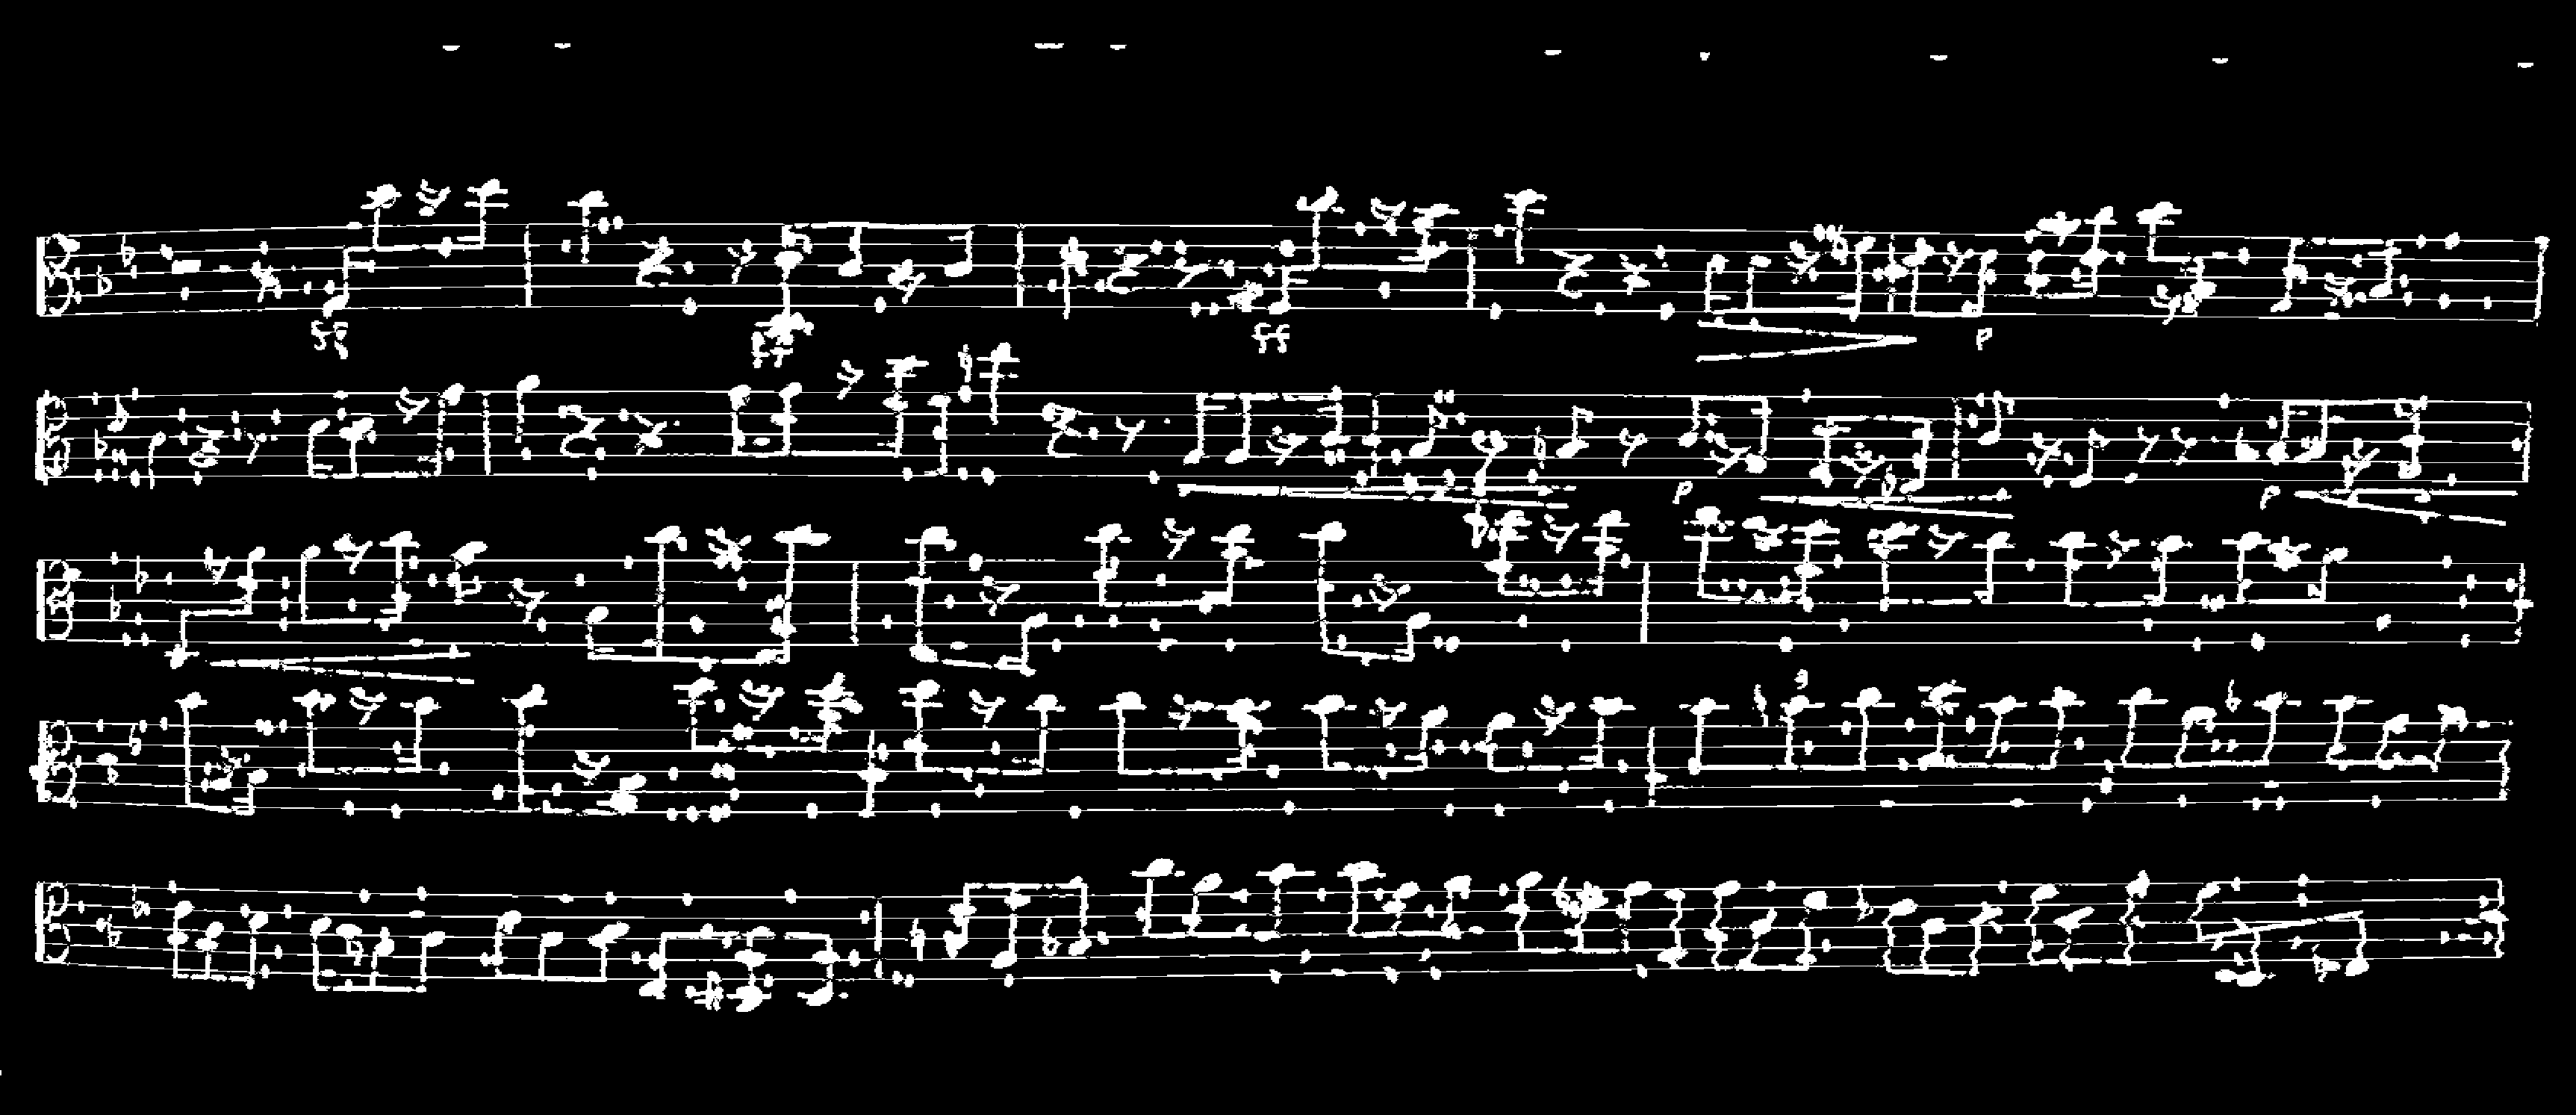 ff ff ff p
p p
9